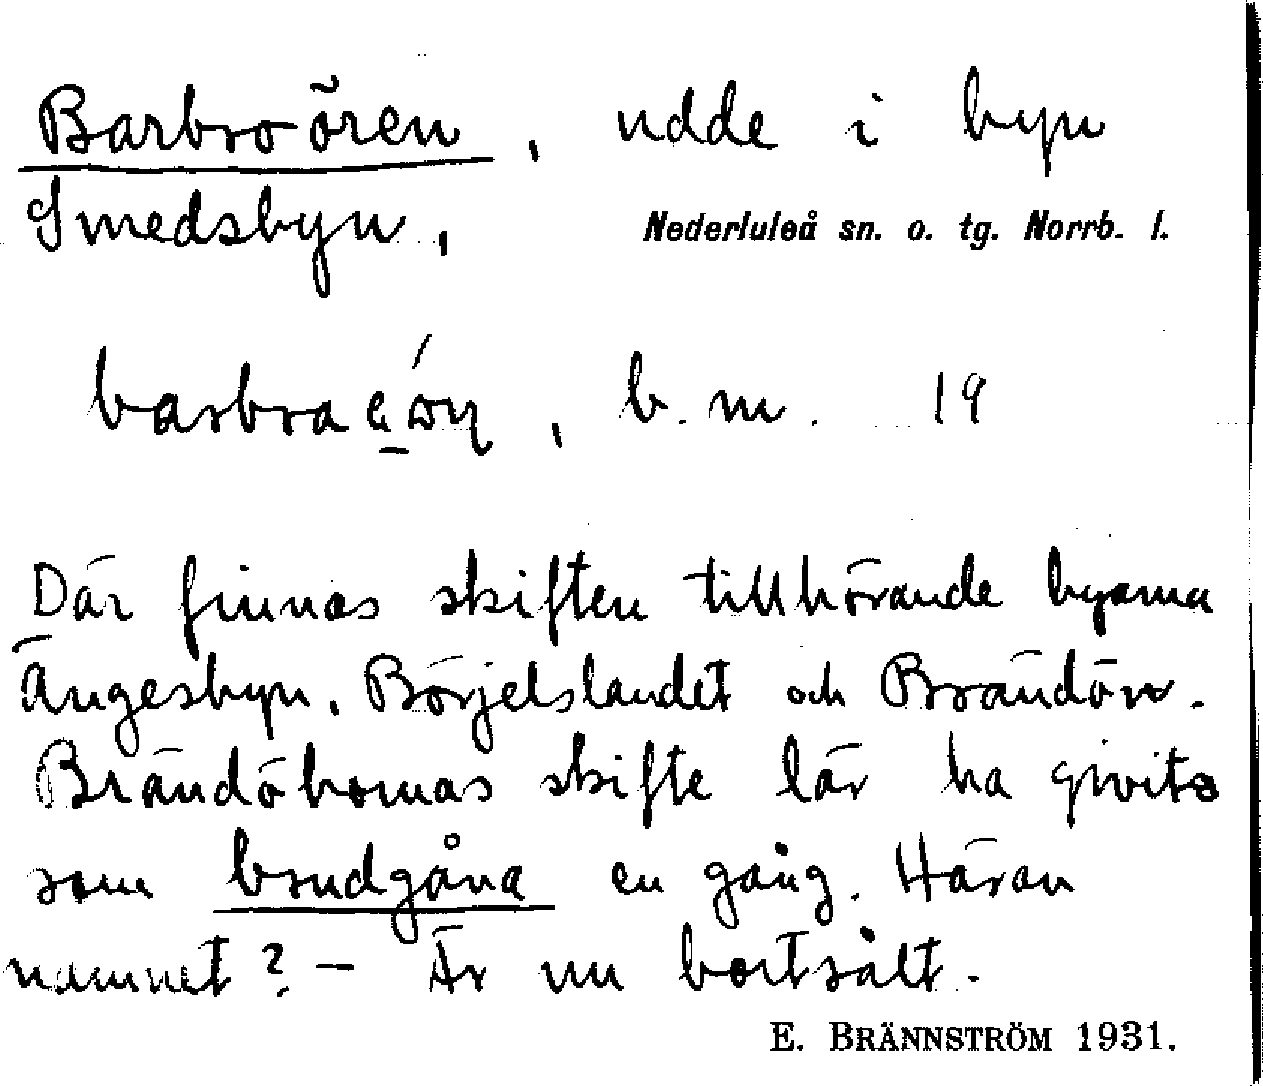 Barbroören, udde i byn
Smedsbyn, Nederluleå sn. o. tg. Norrb. l.
b. m. 19
Där finnas skiften tillhörande byarna
Ängesbyn, Börjelslandet och Brändön.
Brändöbornas skifte lär ha givits
som brudgåva en gång. Härav
namnet? – Är nu bortsålt.
E. BRÄNNSTRÖM 1931.